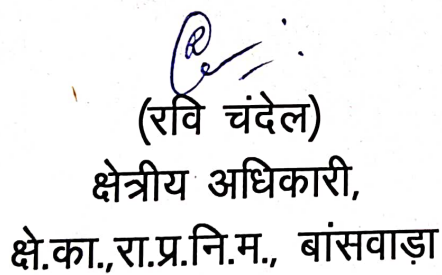 (रवि चंदेल)
क्षेत्रीय अधिकारी,
क्षे.का.,रा.प्र.नि.म., बांसवाड़ा